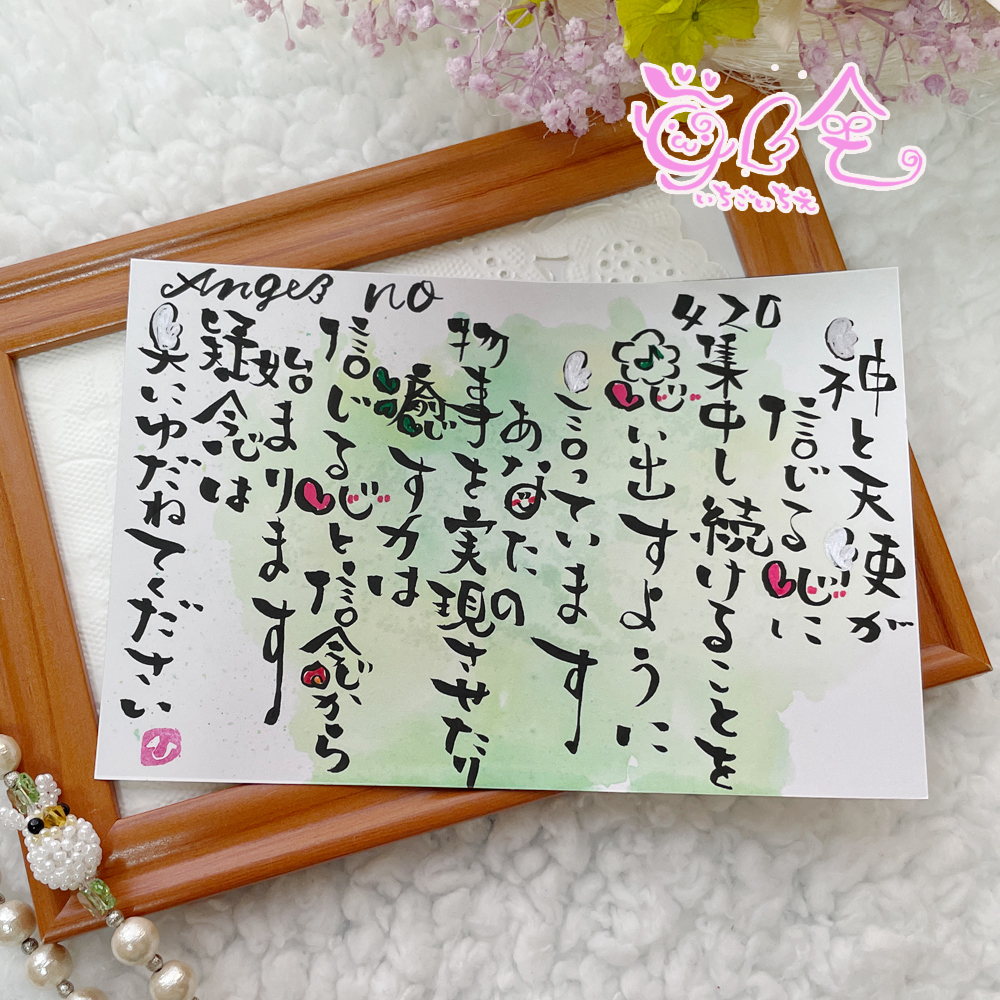 いちごいちえ
Angel no 420
神と天使が
信じる心に
集中し続けることを
思い出すように
言っています
あなたの
物事を実現させたり
癒すかは
信じる心と信念から
始まります
疑念は
天にゆだねてください
ひ